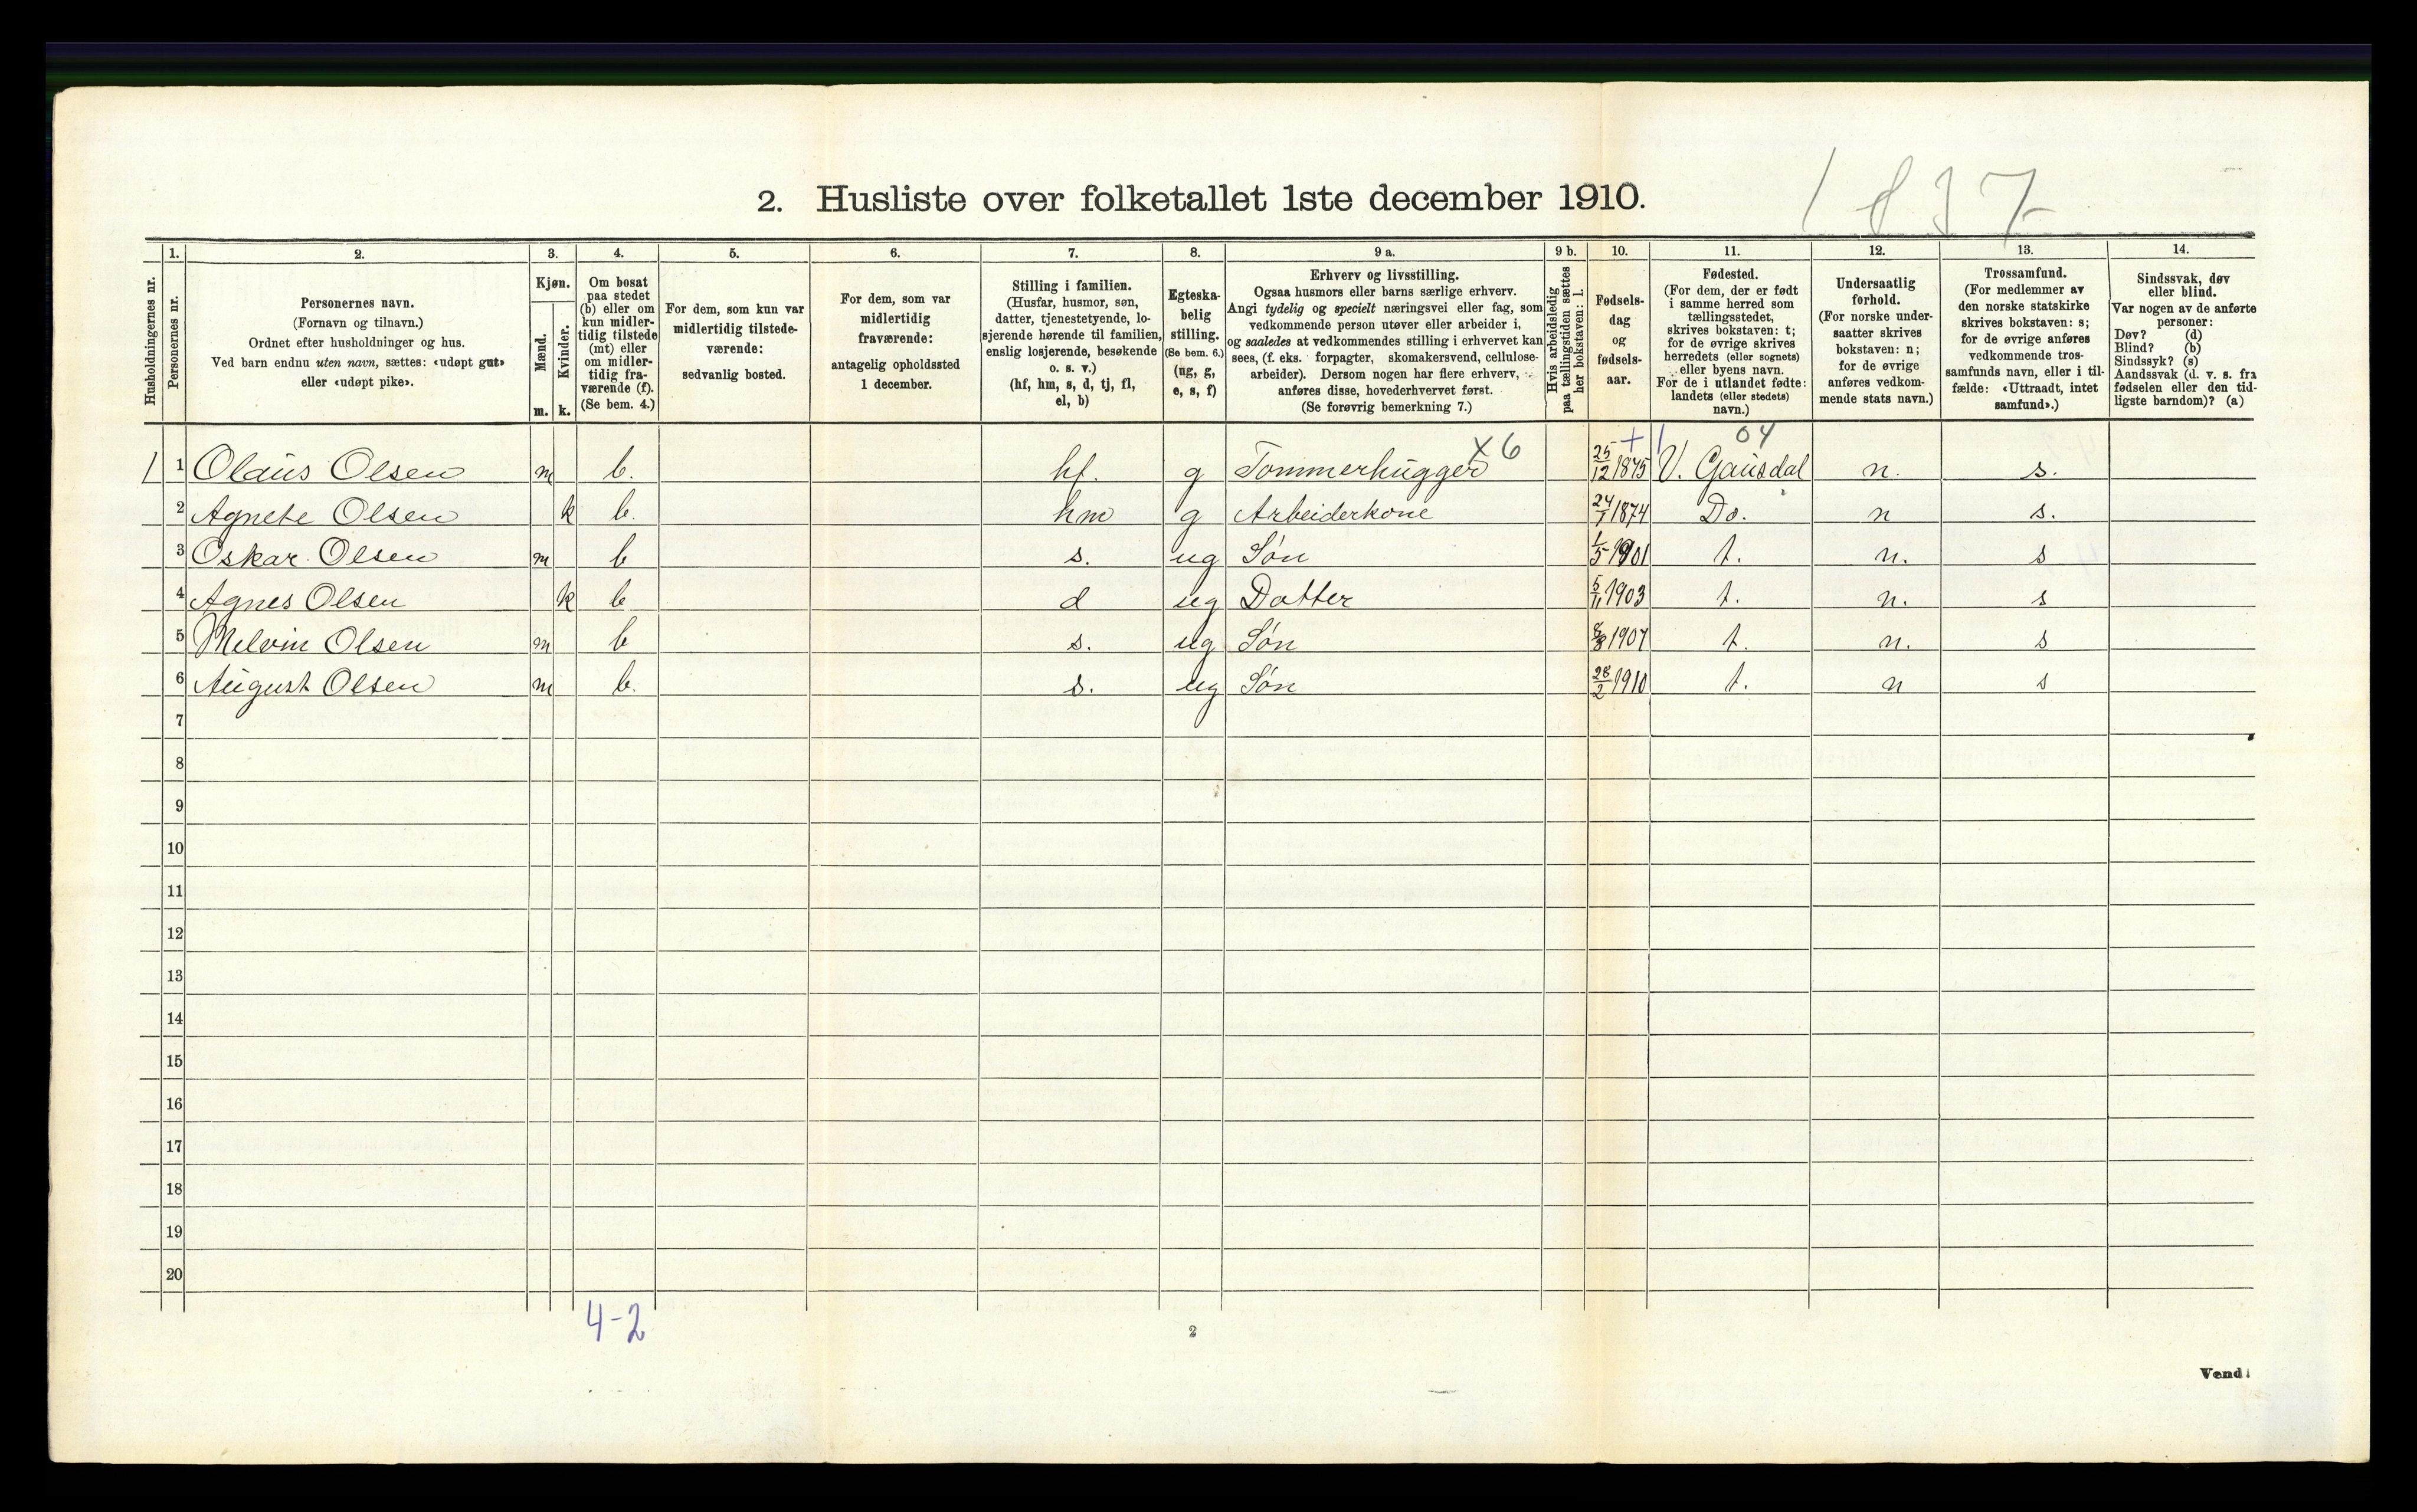 1837
2. Husliste over folketallet 1ste december 1910.
1. 2. 3. 4. 5. 6. 7. 8. 9 a. 9 b. 10. 11. 12. 13. 14.
Husholdningernes nr.
Personernes nr.
Personernes navn.
(Fornavn og tilnavn.)
Ordnet efter husholdninger og hus.
Ved barn endnu uten navn, sættes: «udøpt gut»
eller «udøpt pike».
Kjøn.
Mænd.
Kvinder.
m. k.
Om bosat
paa stedet
(b) eller om
kun midler-
tidig tilstede
(mt) eller
om midler-
tidig fra-
værende (f).
(Se bem. 4.)
For dem, som kun var
midlertidig tilstede-
værende:
sedvanlig bosted.
For dem, som var
midlertidig
fraværende:
antagelig opholdssted
1 december.
Stilling i familien.
(Husfar, husmor, søn,
datter, tjenestetyende, lo-
sjerende hørende til familien,
enslig losjerende, besøkende
o. s. v.)
(hf, hm, s, d, tj, fl,
el, b)
Egteska-
belig
stilling.
(Se bem. 6.)
(ug, g,
e, s, f)
Erhverv og livsstilling.
Ogsaa husmors eller barns særlige erhverv.
Angi tydelig og specielt næringsvei eller fag, som
vedkommende person utøver eller arbeider i,
og saaledes at vedkommendes stilling i erhvervet kan
sees, (f. eks. forpagter, skomakersvend, cellulose-
arbeider). Dersom nogen har flere erhverv,
anføres disse, hovederhvervet først.
(Se forøvrig bemerkning 7.)
Hvis arbeidsledig
paa tællingstiden sættes
her bokstaven: l.
Fødsels-
dag
og
fødsels-
aar.
Fødested.
(For dem, der er født
i samme herred som
tællingsstedet,
skrives bokstaven: t;
for de øvrige skrives
herredets (eller sognets)
eller byens navn.
For de i utlandet fødte:
landets (eller stedets)
navn.)
Undersaatlig
forhold.
(For norske under-
saatter skrives
bokstaven: n;
for de øvrige
anføres vedkom-
mende stats navn.)
Trossamfund.
(For medlemmer av
den norske statskirke
skrives bokstaven: s;
for de øvrige anføres
vedkommende tros-
samfunds navn, eller i til-
fælde: «Uttraadt, intet
samfund».)
Sindssvak, døv
eller blind.
Var nogen av de anførte
personer:
Døv? (d)
Blind? (b)
Sindssyk? (s)
Aandssvak (d. v. s. fra
fødselen eller den tid-
ligste barndom)? (a)
X6 + 1 04
1 1 Olaus Olsen m b. hf. g Tømmerhugger 25/12 1875 V. Gausdal n. s.
2 Agnete Olsen k b. hm g Arbeiderkone 24/1 1874 Do. n s.
3 Oskar Olsen m b s. ug Søn 1/5 1901 t. n. s
4 Agnes Olsen k b d ug Datter 5/11 1903 t. n. s
5 Melvin Olsen m b s. ug Søn 1907 t. n. s
6 August Olsen m b. s. ug Søn 28/2 1910 t. n s
7
8
9
10
11
12
13
14
15
16
17
18
19
20
4-2
2
Vend!